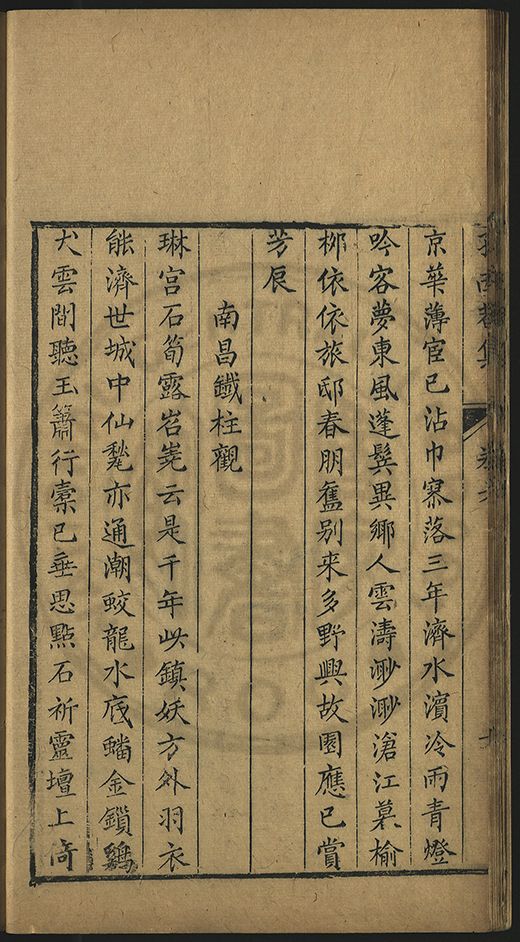 京華薄宦已沾巾寥落三年濟水濱冷雨青燈
吟客夢東風蓬鬂異鄉人雲濤渺渺滄江暮榆
栁依依旅邸春朋舊别来多野興故園應已賞
芳辰
南昌鐡柱觀
琳宫石筍露岧嶤云是千年此鎮妖方外羽衣
能濟世城中仙甃亦通潮蛟龍水底蟠金鎖鷄
犬雲間聽玉簫行槖已垂思點石祈靈壇上倚